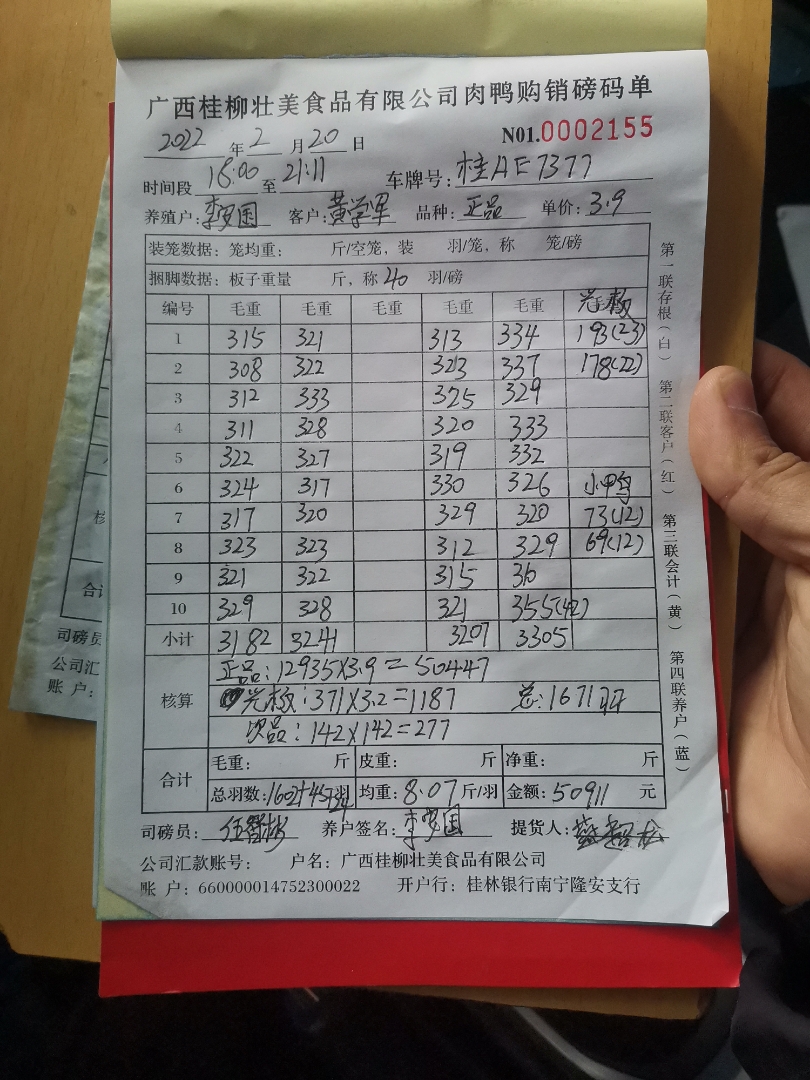 广西桂柳壮美食品有限公司肉鸭购销磅码单
2022 年 2 月 20 日 N01.0002155
时间段 18:00 至 21:11 车牌号: 桂AE7377
养殖户: 李罗国 客户: 黄学军 品种: 正品 单价: 3.9
装笼数据: 笼均重: 斤/空笼, 装 羽/笼, 称 笼/磅
捆脚数据: 板子重量 斤, 称 40 羽/磅
编号 毛重 毛重 毛重 毛重 毛重 光板
1 315 321 313 334 193(23)
2 308 322 323 337 178(22)
3 312 333 325 329
4 311 328 320 333
5 322 327 319 332
6 324 317 330 326 小鸭
7 317 320 329 320 73(12)
8 323 323 312 329 69(12)
9 321 322 315 310
10 329 328 321 355(42)
小计 3182 3241 3207 3305
正品: 12935×3.9=50447
核算 光板: 371×3.2=1187 总: 1671羽
次品: 142×142=277
合计 毛重: 斤 皮重: 斤 净重: 斤
总羽数: 1602+45羽 均重: 8.07 斤/羽 金额: 50911 元
24
司磅员: 养户签名: 李罗国 提货人:
公司汇款账号: 户名: 广西桂柳壮美食品有限公司
账 户: 660000014752300022 开户行: 桂林银行南宁隆安支行
第一联存根(白) 第二联客户(红) 第三联会计(黄) 第四联养户(蓝)
合计
司磅员
公司汇
账 户: